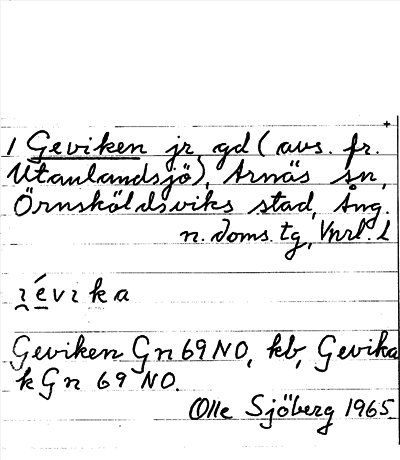 +
1 Geviken jr gd (avs. fr.
Utanlandsjö), Arnäs sn,
Örnsköldsviks stad, Ång.
n. doms. tg, Vnrl. L
ı̯évıka
Geviken Gn 69 NO, kb, Gevika
k Gn 69 NO.
Olle Sjöberg 1965